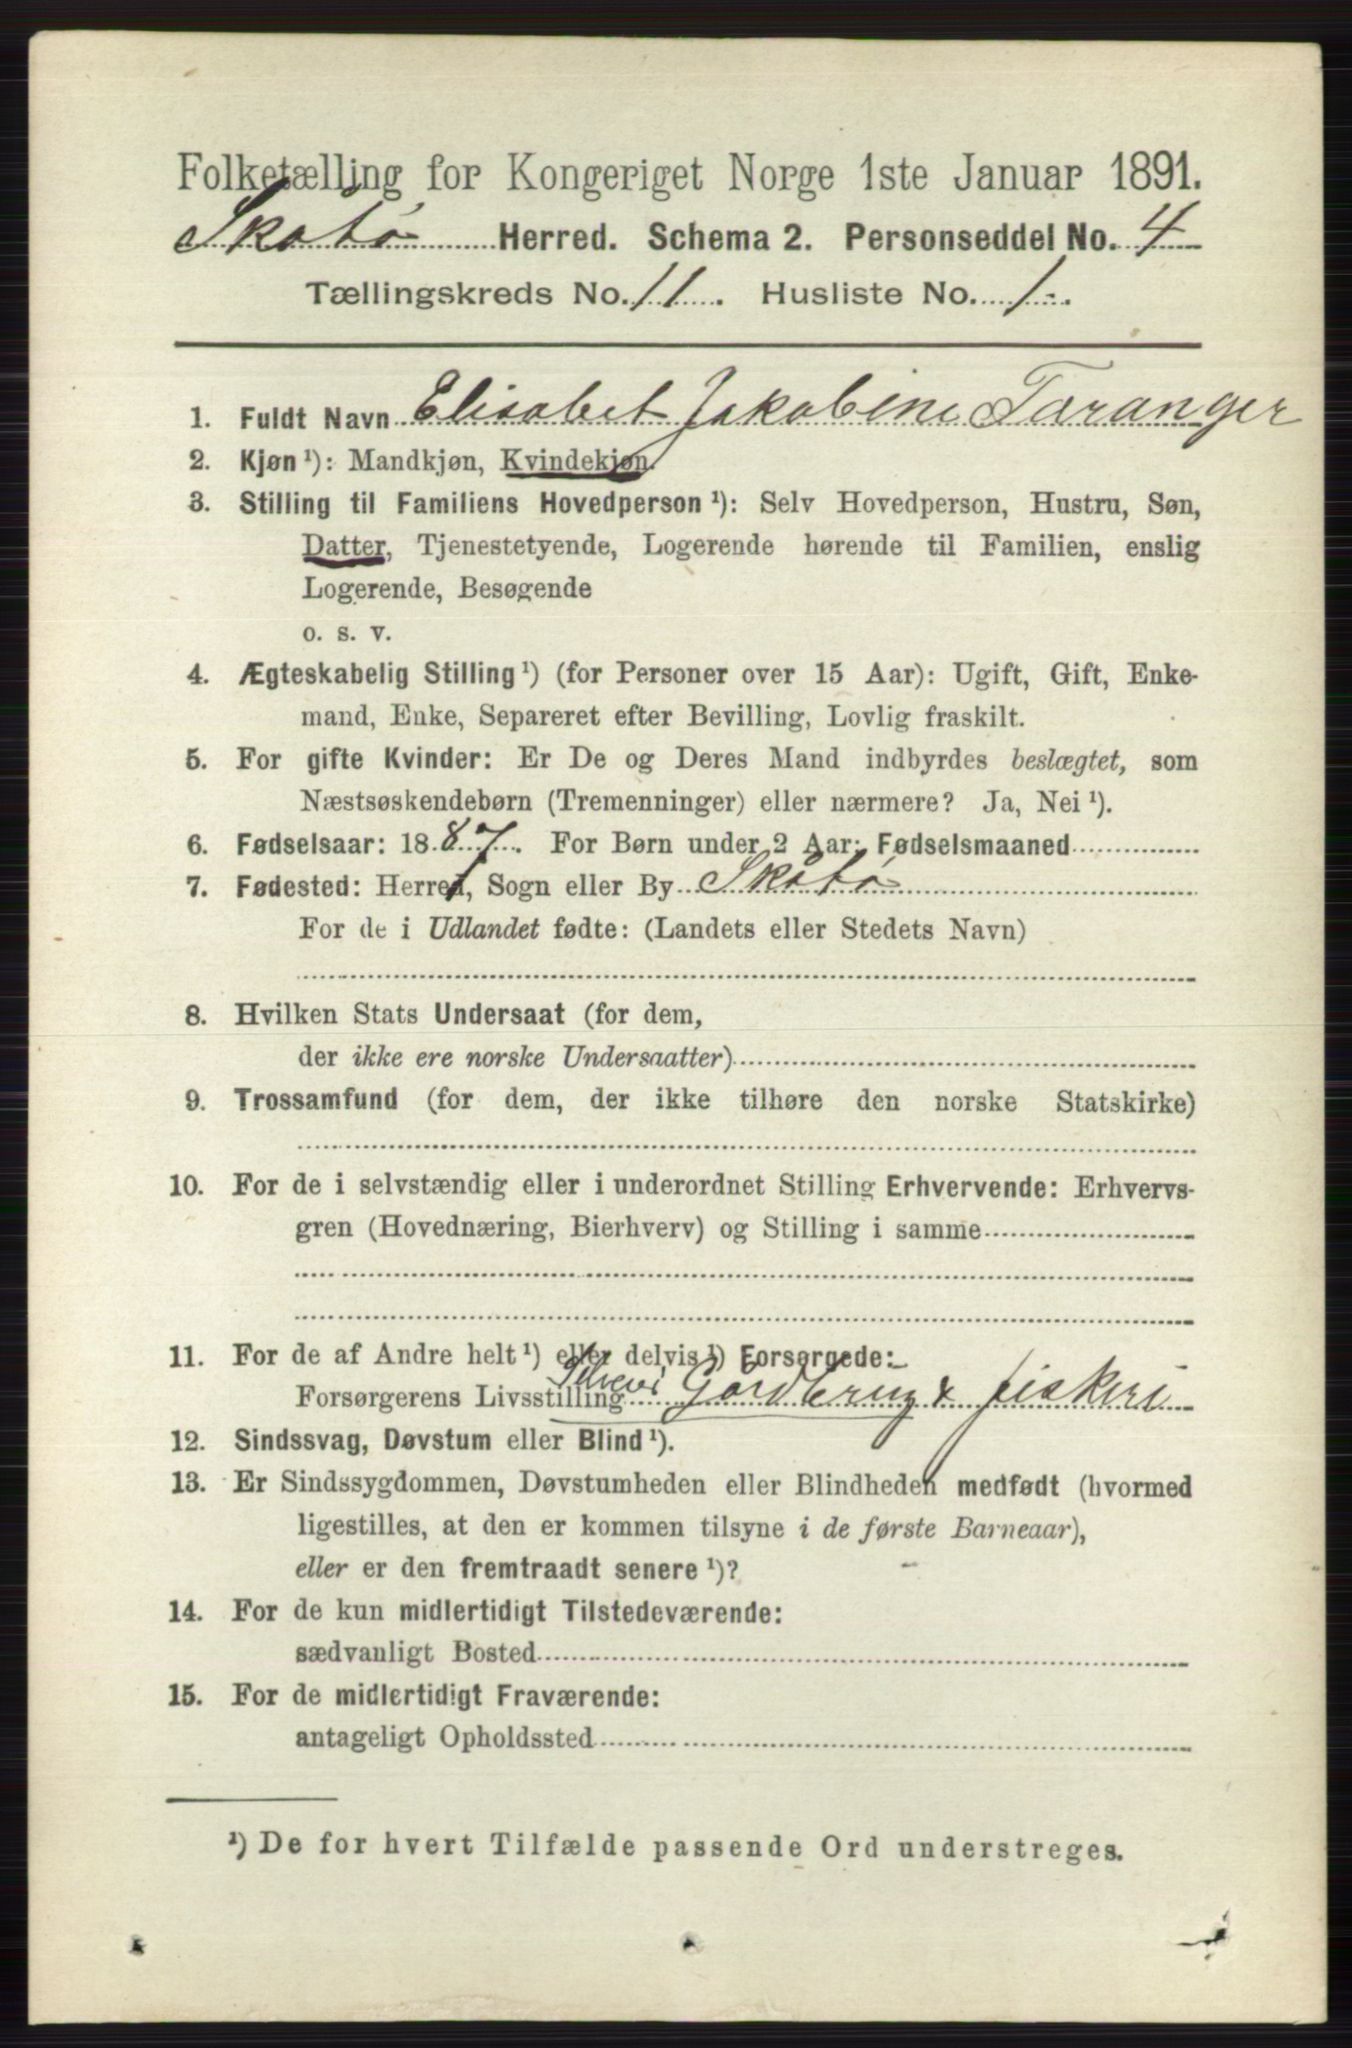 Folketælling for Kongeriget Norge 1ste Januar 1891.
Skåtø Herred. Schema 2. Personseddel No. 4
Tællingskreds No. 11. Husliste No. 1.
1. Fuldt Navn Elisabet Jakobine Taranger
2. Kjøn ¹): Mandkjøn, Kvindekjøn.
3. Stilling til Familiens Hovedperson ¹): Selv Hovedperson, Hustru, Søn,
Datter, Tjenestetyende, Logerende hørende til Familien, enslig
Logerende, Besøgende
o. s. v.
4. Ægteskabelig Stilling ¹) (for Personer over 15 Aar): Ugift, Gift, Enke-
mand, Enke, Separeret efter Bevilling, Lovlig fraskilt.
5. For gifte Kvinder: Er De og Deres Mand indbyrdes beslægtet, som
Næstsøskendebørn (Tremenninger) eller nærmere? Ja, Nei ¹).
6. Fødselsaar: 1887. For Børn under 2 Aar: Fødselsmaaned
7. Fødested: Herred, Sogn eller By Skåtø
For de i Udlandet fødte: (Landets eller Stedets Navn)
8. Hvilken Stats Undersaat (for dem,
der ikke ere norske Undersaatter)
9. Trossamfund (for dem, der ikke tilhøre den norske Statskirke)
10. For de i selvstændig eller i underordnet Stilling Erhvervende: Erhvervs-
gren (Hovednæring, Bierhverv) og Stilling i samme
11. For de af Andre helt ¹) eller delvis ¹) Forsørgede:
Forsørgerens Livsstilling Gårdbrug & fiskeri
12. Sindssvag, Døvstum eller Blind ¹).
13. Er Sindssygdommen, Døvstumheden eller Blindheden medfødt (hvormed
ligestilles, at den er kommen tilsyne i de første Barneaar),
eller er den fremtraadt senere ¹)?
14. For de kun midlertidigt Tilstedeværende:
sædvanligt Bosted
15. For de midlertidigt Fraværende:
antageligt Opholdssted
¹) De for hvert Tilfælde passende Ord understreges.